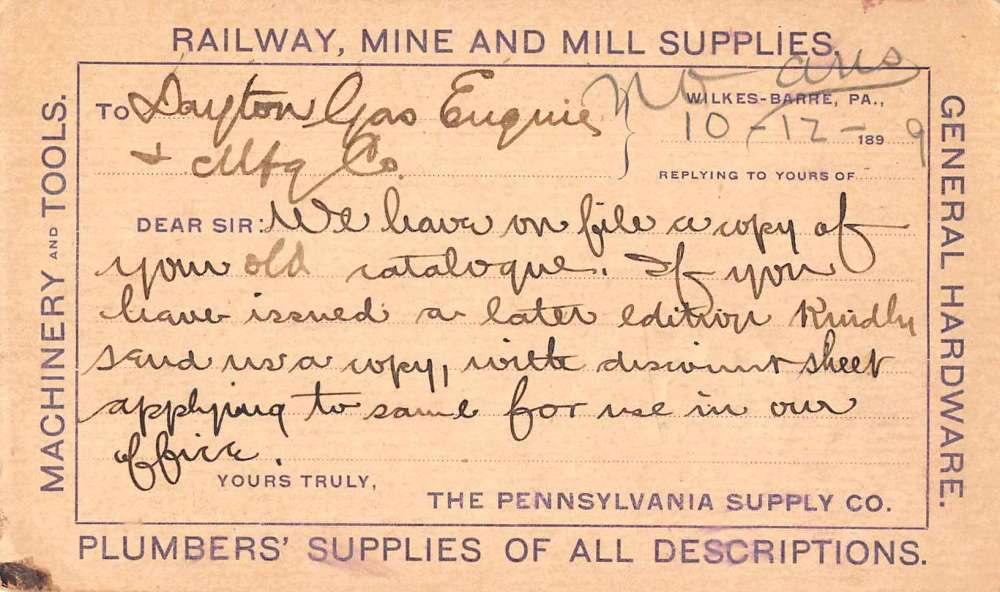 RAILWAY, MINE AND MILL SUPPLIES.
No ans
TO Dayton Gas Engine
& Mfg Co.
WILKES-BARRE, PA.,
10-12-1899
REPLYING TO YOURS OF
DEAR SIR: We have on file a copy of
your old catalogue. If you
have issued a later edition Kindly
send us a copy, with discount sheet
applying to same for use in our
office.
YOURS TRULY,
THE PENNSYLVANIA SUPPLY CO.
MACHINERY AND TOOLS.
GENERAL HARDWARE.
PLUMBERS' SUPPLIES OF ALL DESCRIPTIONS.